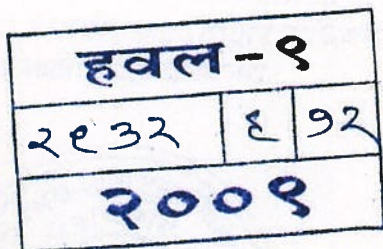 हवल-१
२९३२ ६ १२
२००१